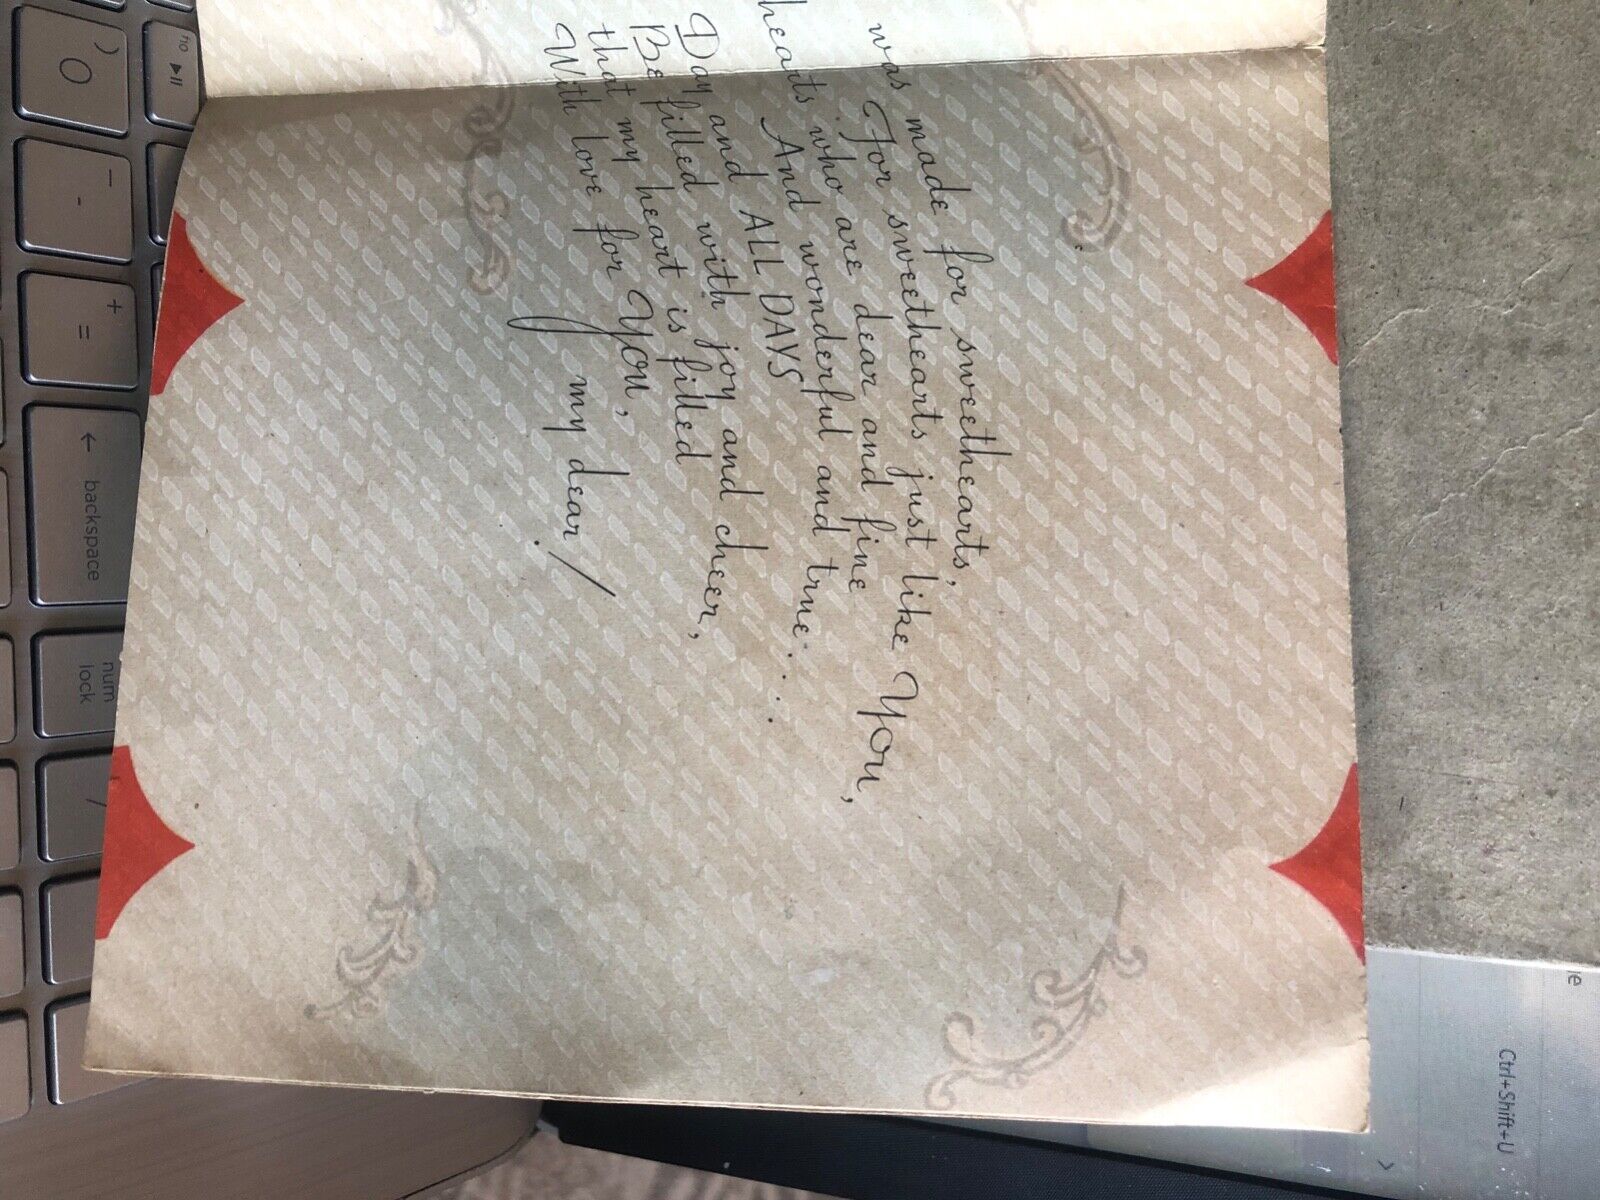 was made for sweethearts,
For sweethearts just like You,
hearts who are dear and fine
And wonderful and true. . . .
Day and ALL DAYS
Be filled with joy and cheer,
that my heart is filled
With love for You,
my dear!
fio ▶||
)
0
_
-
+
=
← backspace
num
lock
/
le
Ctrl+Shift+U
>